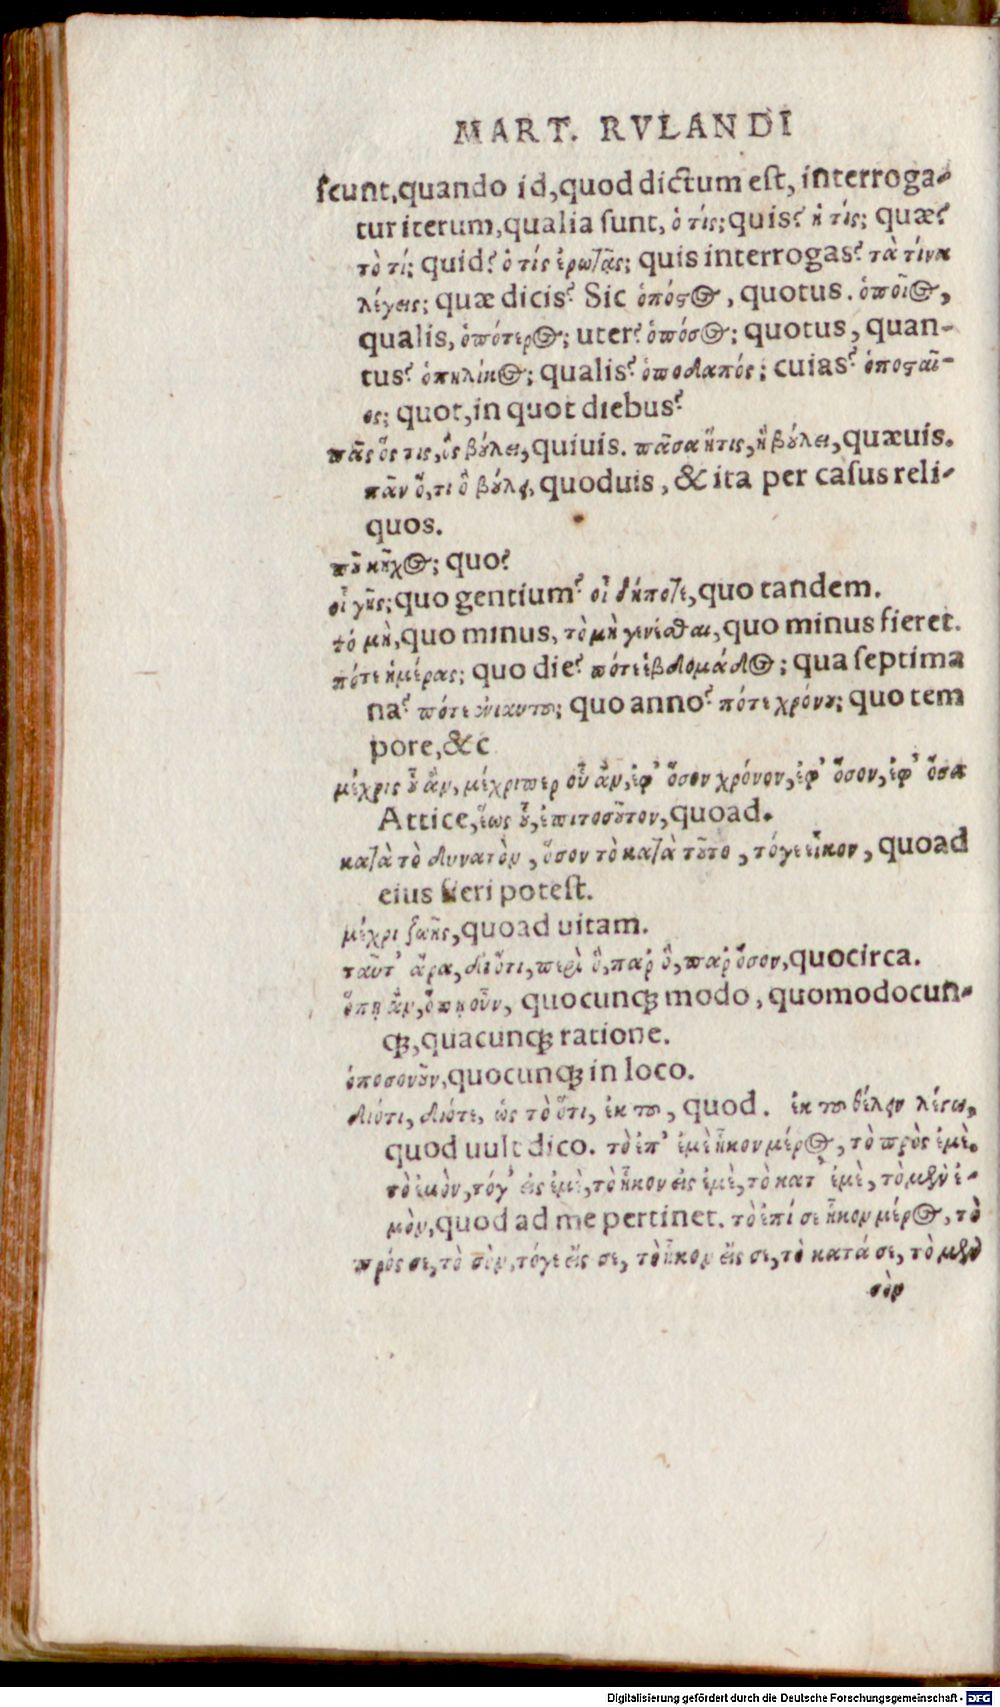 MART. RVLANDI
scunt, quando id, quod dictum est, interroga-
tur iterum, qualia sunt, ὁ τίς; quis? ἡ τίς; quæ?
τὸ τί; quid? ὁ τίς ἐρωτᾷς; quis interrogas? τὰ τίνα
λέγεις; quæ dicis? Sic ὁπόςος, quotus. ὁποῖος,
qualis, ὁπότερος; uter? ὁπόσος; quotus, quan-
tus? ὁπηλίκος; qualis? ὁποδαπός; cuias? ὁποςαῖ-
ος; quot, in quot diebus?
πᾶς ὅς τις, ὃς βούλει, quiuis. πᾶσα ἥτις, ἣ βούλει, quæuis.
πᾶν ὅ, τι ὃ βούλει, quoduis, & ita per casus reli-
quos.
ποῦ κῆχος; quo?
οἷ γῆς; quo gentium? οἷ δήποτε, quo tandem.
τὸ μὴ, quo minus, τὸ μὴ γενέσθαι, quo minus fieret.
πότε ἡμέρας; quo die? πότε ἑβδομάδος; qua septima
na? πότε ἐνιαυτοῦ; quo anno? πότε χρόνου; quo tem
pore, &c
μέχρις οὗ ἂν, μέχριπερ οὗ ἂν, ἐφ' ὅσον χρόνον, ἐφ' ὅσον, ἐφ' ὅσα
Attice, ἕως οὗ, ἐπιτοσοῦτον, quoad.
κατὰ τὸ δυνατὸν, ὅσον τὸ κατὰ τοῦτο, τόγε εἷκον, quoad
eius fieri potest.
μέχρι ζωῆς, quoad uitam.
ταῦτ' ἄρα, διότι, περὶ ὃ, παρ ὃ, παρ ὅσον, quocirca.
ὅπῃ ἂν, ὅπῃ οὖν, quocunq; modo, quomodocun-
q;, quacunq; ratione.
ὁποσονοῦν, quocunq; in loco.
διότι, διότε, ὡς τὸ ὅτι, ἐκ τοῦ, quod. ἐκ τοῦ θέλειν λέγω,
quod uult dico. τὸ ἐπ' ἐμὲ ἧκον μέρος, τὸ πρὸς ἐμὲ.
τὸ ἐμὸν, τόγ' εἰς ἐμὲ, τὸ ἧκον εἰς ἐμὲ, τὸ κατ' ἐμὲ, τὸ μὲν ἐ-
μὸν, quod ad me pertinet. τὸ ἐπί σε ἧκον μέρος, τὸ
πρός σε, τὸ σὸν, τόγε εἴς σε, τὸ ἧκον εἴς σε, τὸ κατά σε, τὸ μὲν
σὸν
Digitalisierung gefördert durch die Deutsche Forschungsgemeinschaft - DFG